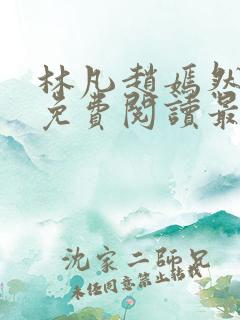 林凡趙嫣然
免費閱讀最
沈家二師兄
未经同意禁止转载